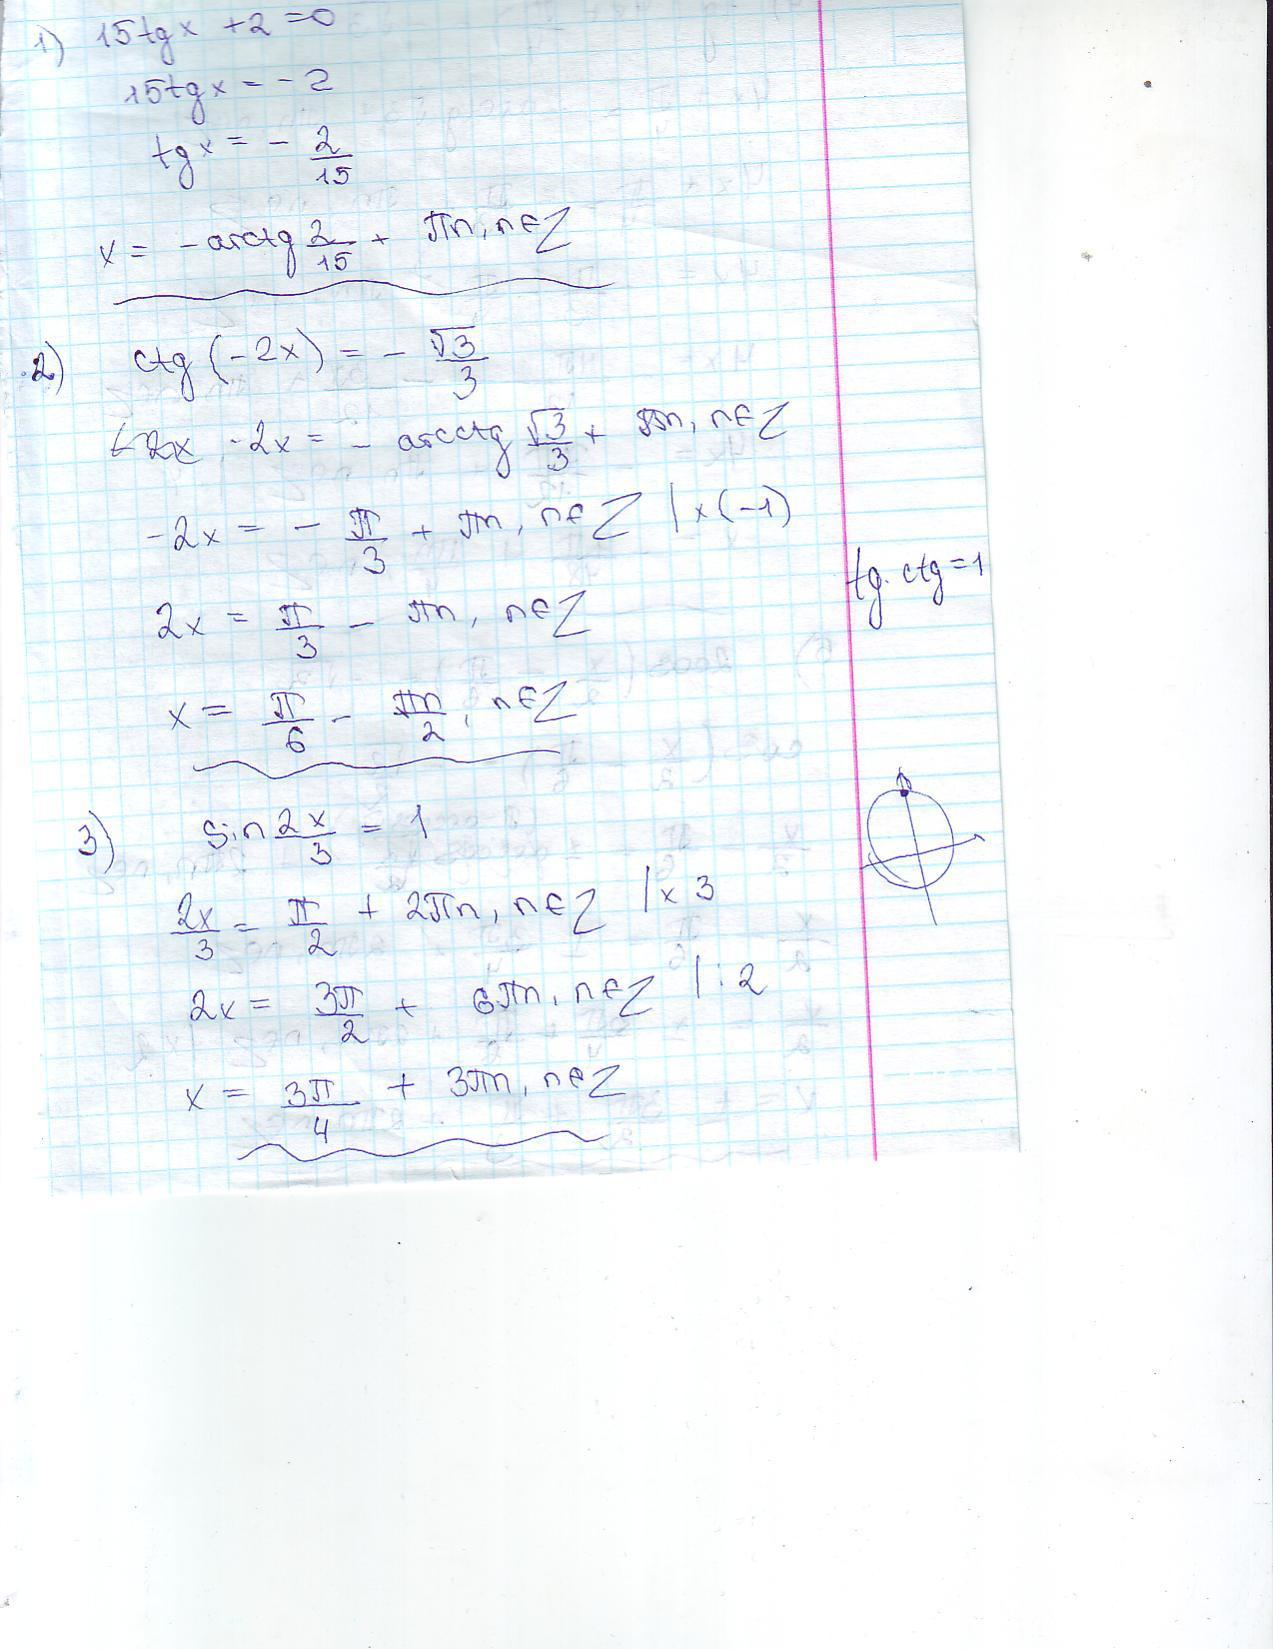 1) 15tgx + 2 = 0
15tgx = - 2
tgx = - 2/15
x = - arctg 2/15 + πn, n∈Z
2) ctg (-2x) = - √3/3
-2x = - arcctg √3/3 + πn, n∈Z
-2x = - π/3 + πn, n∈Z | x (-1)
tg · ctg = 1
2x = π/3 - πn, n∈Z
x = π/6 - πn/2, n∈Z
3) sin 2x/3 = 1
2x/3 = π/2 + 2πn, n∈Z | x 3
2x = 3π/2 + 6πn, n∈Z | : 2
x = 3π/4 + 3πn, n∈Z